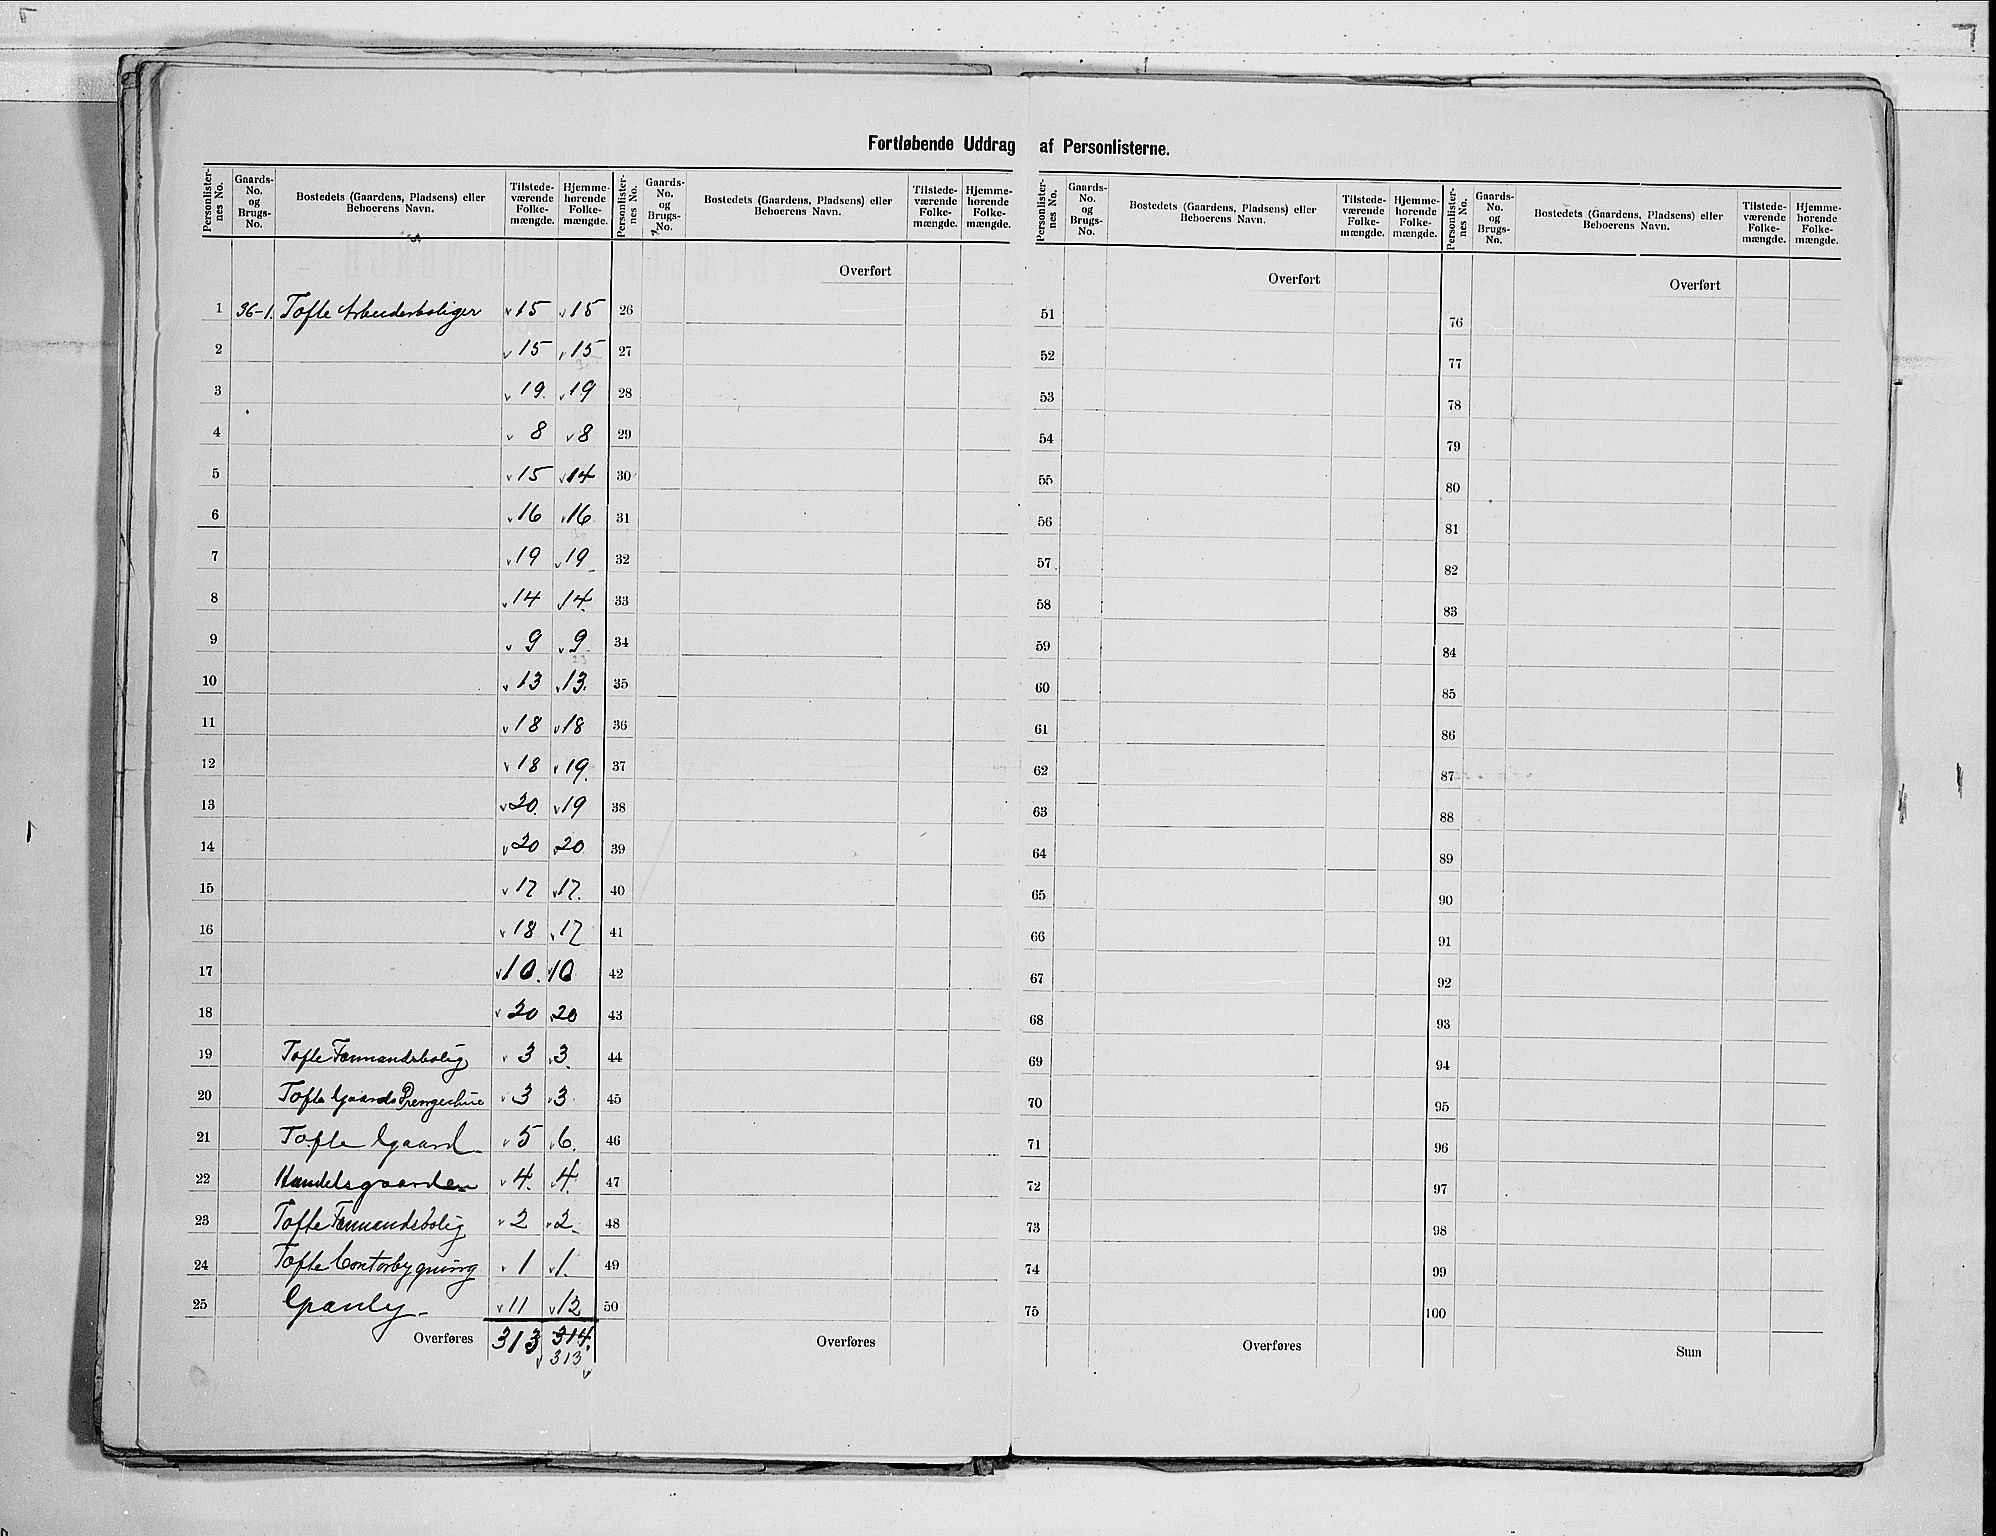 Fortløbende Uddrag af Personlisterne.
Personlister-nes No. | Gaards-No. og Brugs-No. | Bostedets (Gaardens, Pladsens) eller Beboerens Navn. | Tilstede-værende Folke-mængde. | Hjemme-hørende Folke-mængde. | Personlister-nes No. | Gaards-No. og Brugs-No. | Bostedets (Gaardens, Pladsens) eller Beboerens Navn. | Tilstede-værende Folke-mængde. | Hjemme-hørende Folke-mængde. | Personlister-nes No. | Gaards-No. og Brugs-No. | Bostedets (Gaardens, Pladsens) eller Beboerens Navn. | Tilstede-værende Folke-mængde. | Hjemme-hørende Folke-mængde. | Personlister-nes No. | Gaards-No. og Brugs-No. | Bostedets (Gaardens, Pladsens) eller Beboerens Navn. | Tilstede-værende Folke-mængde. | Hjemme-hørende Folke-mængde.
Overført Overført Overført
1 36-1. Tofte Arbeiderboliger v 15 v 15 26 51 76
2 v 15 v 15 27 52 77
3 v 19. v 19 28 53 78
4 v 8 v 8 29 54 79
5 v 15 v 14 30 55 80
6 v 16 v 16 31 56 81
7 v 19 v 19 32 57 82
8 v 14 14. 33 58 83
9 v 9 v 9. 34 59 84
10 v 13 v 13. 35 60 85
11 v 18 v 18 36 61 86
12 v 18 v 19. 37 62 87
13 v 20. v 19 38 63 88
14 v 20 v 20 39 64 89
15 v 17 v 17. 40 65 90
16 v 18 v 17 41 66 91
17 v 10. v 10 42 67 92
18 v 20 20 43 68 93
19 Tofte Formandsbolig v 3 v 3. 44 69 94
20 Tofte Gaards v 3 v 3 45 70 95
21 Tofte Gaard v 5 v 6. 46 71 96
22 Handelsgaarden v 4. v 4. 47 72 97
23 Tofte Formandsbolig v 2 v 2 48 73 98
24 Tofte Contorbygning v 1 v 1. 49 74 99
25 v 11 v 12 50 75 100
Overføres 313 314. Overføres Overføres Sum
v 313 v